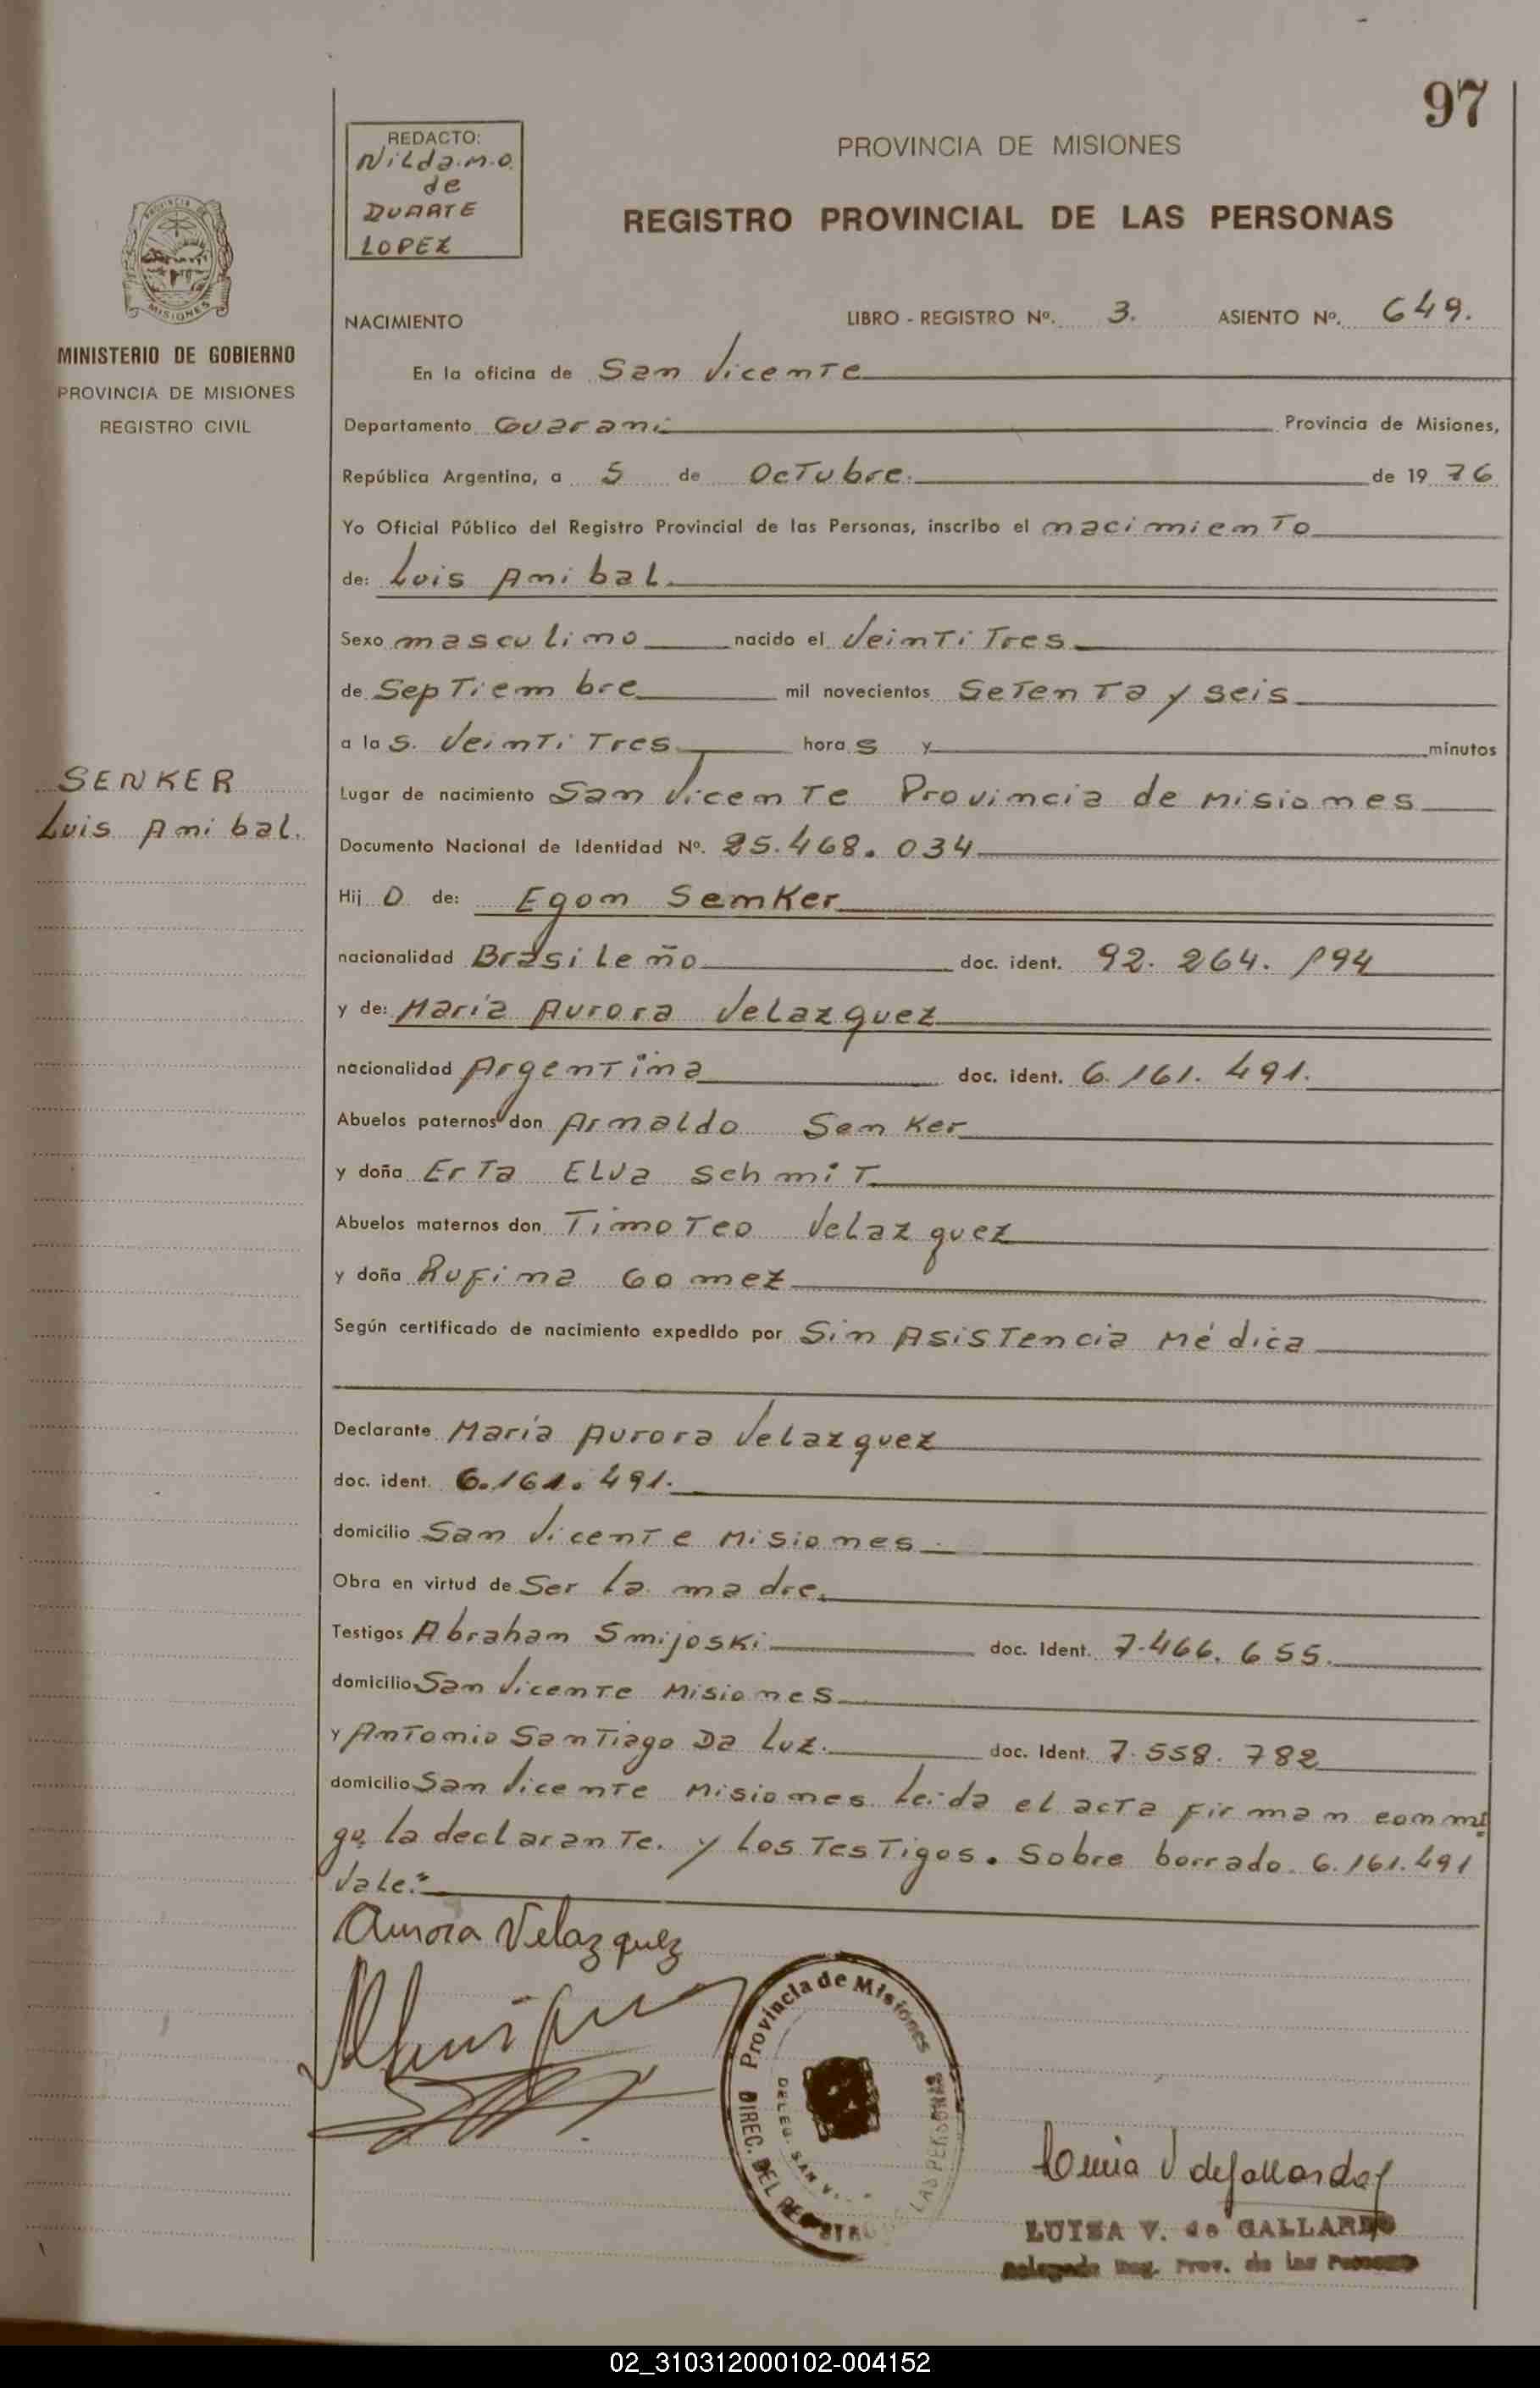 97
REDACTO:
Nilda.M.O.
de
DUARTE
LOPEZ
PROVINCIA DE MISIONES
REGISTRO PROVINCIAL DE LAS PERSONAS
PROVINCIA DE
MISIONES
MINISTERIO DE GOBIERNO
PROVINCIA DE MISIONES
REGISTRO CIVIL
NACIMIENTO LIBRO - REGISTRO Nº. 3. ASIENTO Nº. 649.
En la oficina de San Vicente
Departamento Guarani Provincia de Misiones,
República Argentina, a 5 de Octubre. de 19 76
Yo Oficial Público del Registro Provincial de las Personas, inscribo el nacimiento
de: Luis Anibal
Sexo masculino nacido el Veintitres
de Septiembre mil novecientos Setenta y seis
a las. Veintitres horas y minutos
SENKER
Luis Anibal.
Lugar de nacimiento San Vicente Provincia de Misiones
Documento Nacional de Identidad Nº. 25.468.034
Hijo de: Egon Senker
nacionalidad Brasileño doc. ident. 92.264.194
y de: María Aurora Velazquez
nacionalidad Argentina doc. ident. 6.161.491.
Abuelos paternos don Arnaldo Senker
y doña Erta Elva Schmit
Abuelos maternos don Timoteo Velazquez
y doña Rufina Gomez
Según certificado de nacimiento expedido por Sin Asistencia Médica
Declarante María Aurora Velazquez
doc. ident. 6.161.491.
domicilio San Vicente Misiones
Obra en virtud de Ser la madre.
Testigos Abraham Smijoski doc. Ident. 7.466.655.
domicilio San Vicente Misiones
y Antonio Santiago Da Luz. doc. Ident. 7.558.782
domicilio San Vicente Misiones Leida el acta firman conmi
go, la declarante. y los Testigos. Sobre borrado. 6.161.491
Vale:-
Aurora Velazquez
Provincia de Misiones
DIREC. DEL REGISTRO DE LAS PERSONAS
DELEG. SAN V.
Luisa V de Gallardo
LUISA V. de GALLARDO
Delegada Reg. Prov. de las Personas
02_310312000102-004152